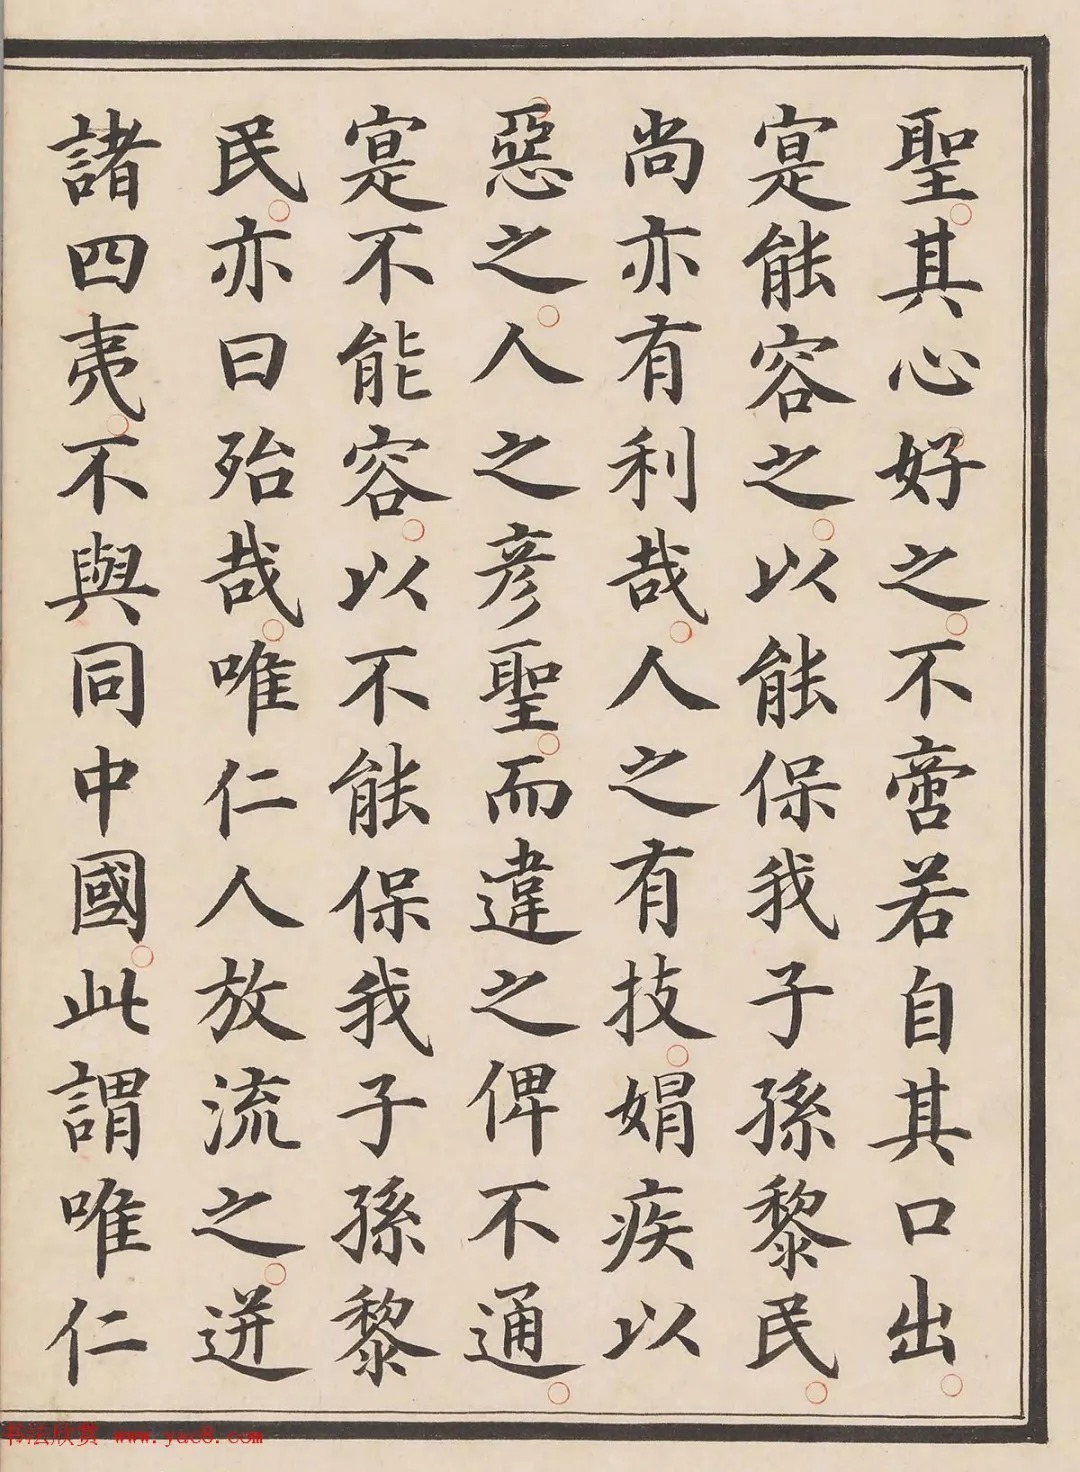 聖其心好之不啻若自其口出
寔能容之以能保我子孫黎民
尚亦有利哉人之有技媢疾以
惡之人之彥聖而違之俾不通
寔不能容以不能保我子孫黎
民亦曰殆哉唯仁人放流之迸
諸四夷不與同中國此謂唯仁
书法欣赏 www.yac8.com